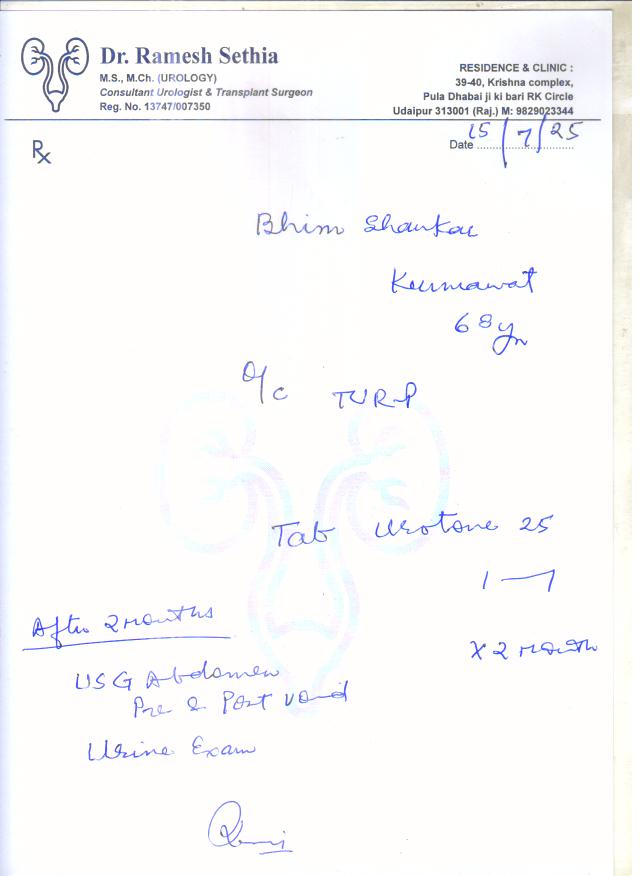 Dr. Ramesh Sethia
M.S., M.Ch. (UROLOGY)
Consultant Urologist & Transplant Surgeon
Reg. No. 13747/007350
RESIDENCE & CLINIC :
39-40, Krishna complex,
Pula Dhabai ji ki bari RK Circle
Udaipur 313001 (Raj.) M: 9829023344
Date 15/7/25
Rx
Bhim Shankar
Kumawat
68 yr
O/C TURP
Tab Urotone 25
1—1
x 2 month
After 2 months
USG Abdomen
Pre & Post void
Urine Exam